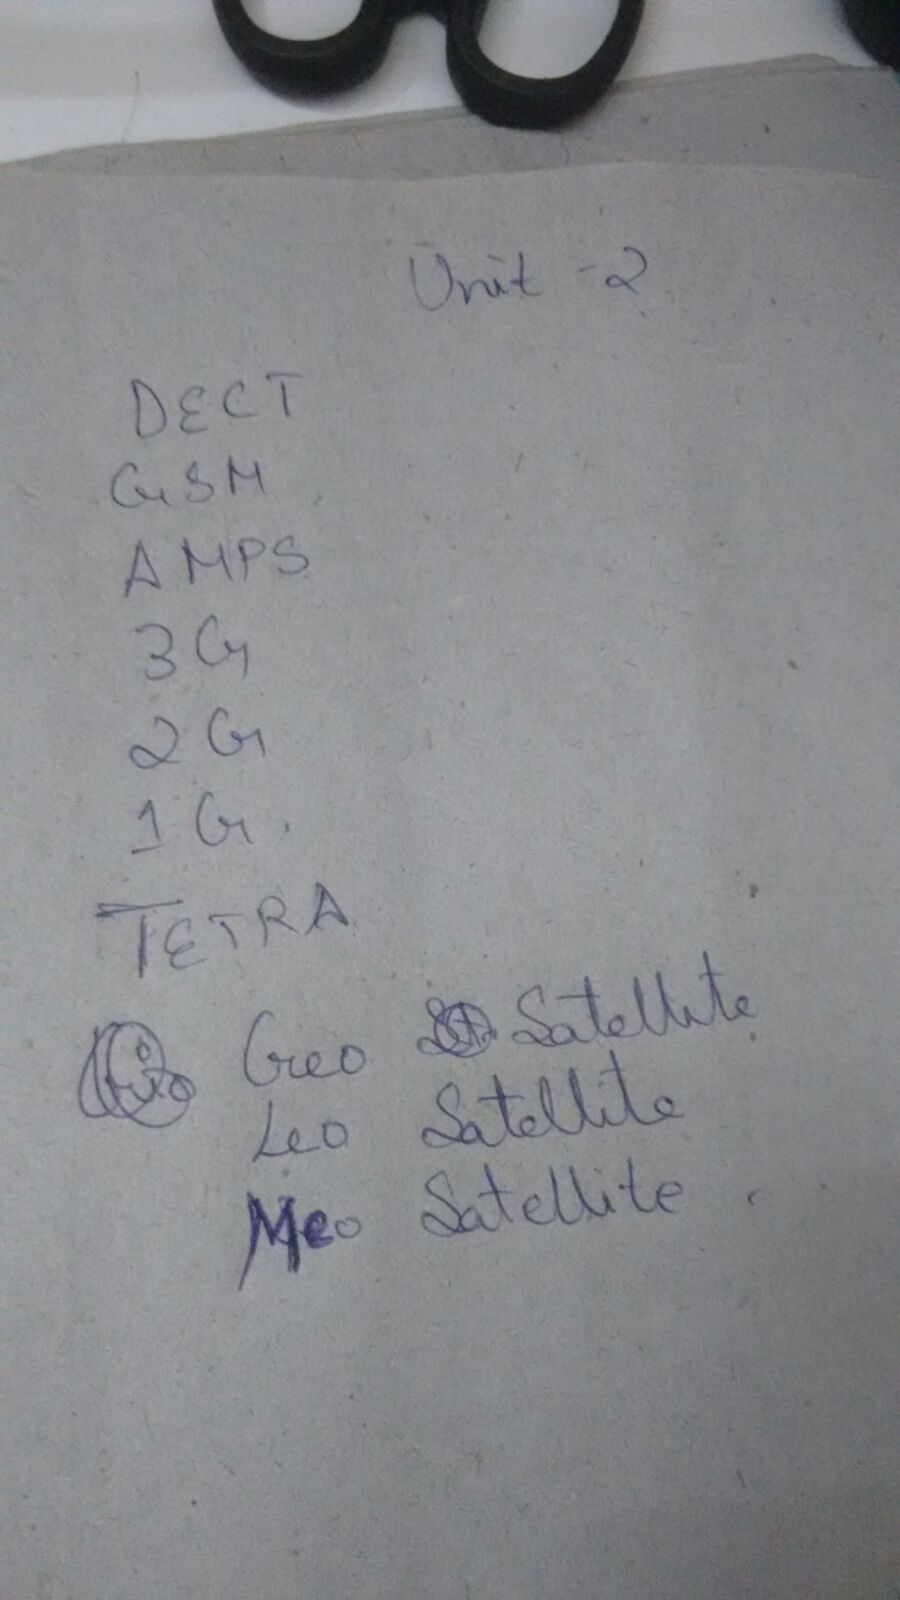 Unit - 2
DECT
GSM
AMPS
3G
2G
1G.
TETRA
Geo Satellite
Leo Satellite
Meo Satellite.